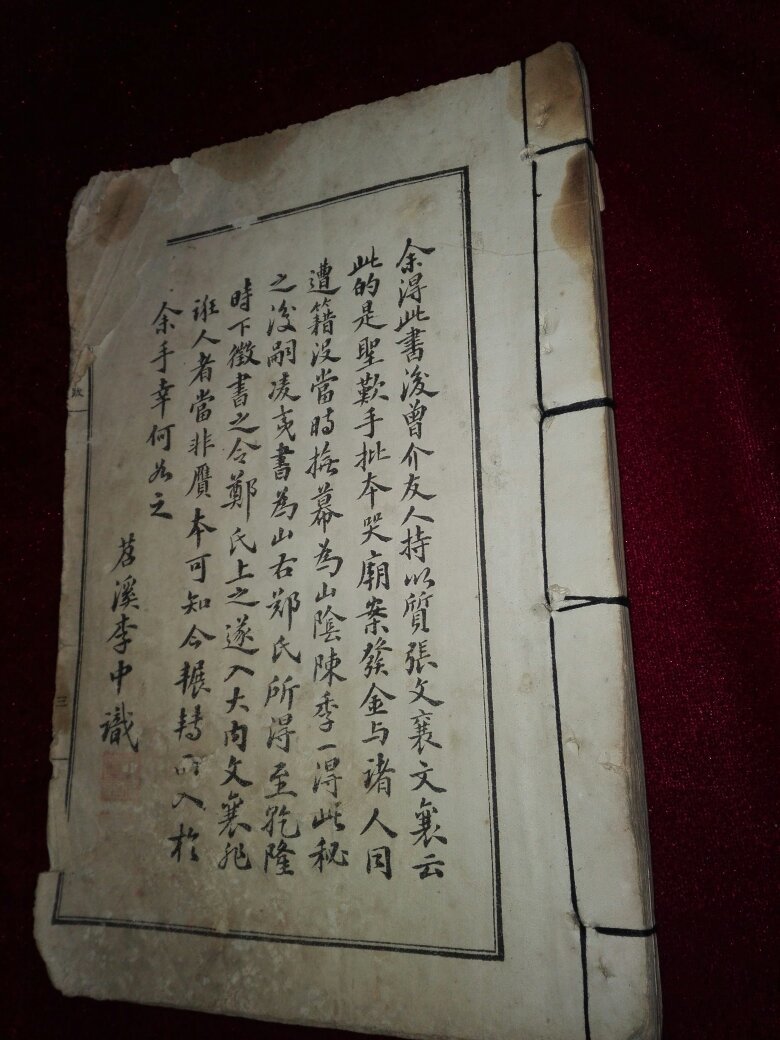 余得此書後曾介友人持以質張文襄文襄云
此的是聖歎手批本哭廟案發金与諸人同
遭籍没當時撫幕為山陰陳季一得此秘
之後嗣凌夷書為山右郑氏所得至乾隆
時下徵書之令鄭氏上之遂入大内文襄非
誑人者當非贋本可知今輾轉 入於
余手幸何如之
苕溪李中識
跋
三